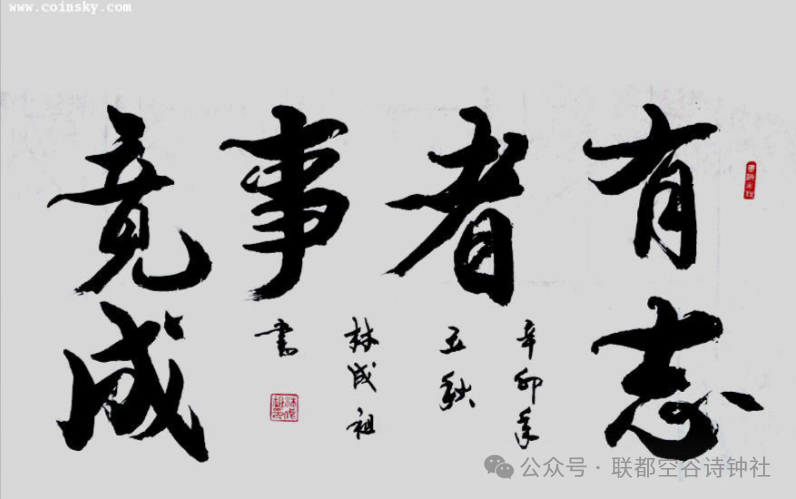 www.coinsky.com
有志
者
事
竟成
辛卯年
五秋
林成祖
书
公众号·联都空谷诗钟社